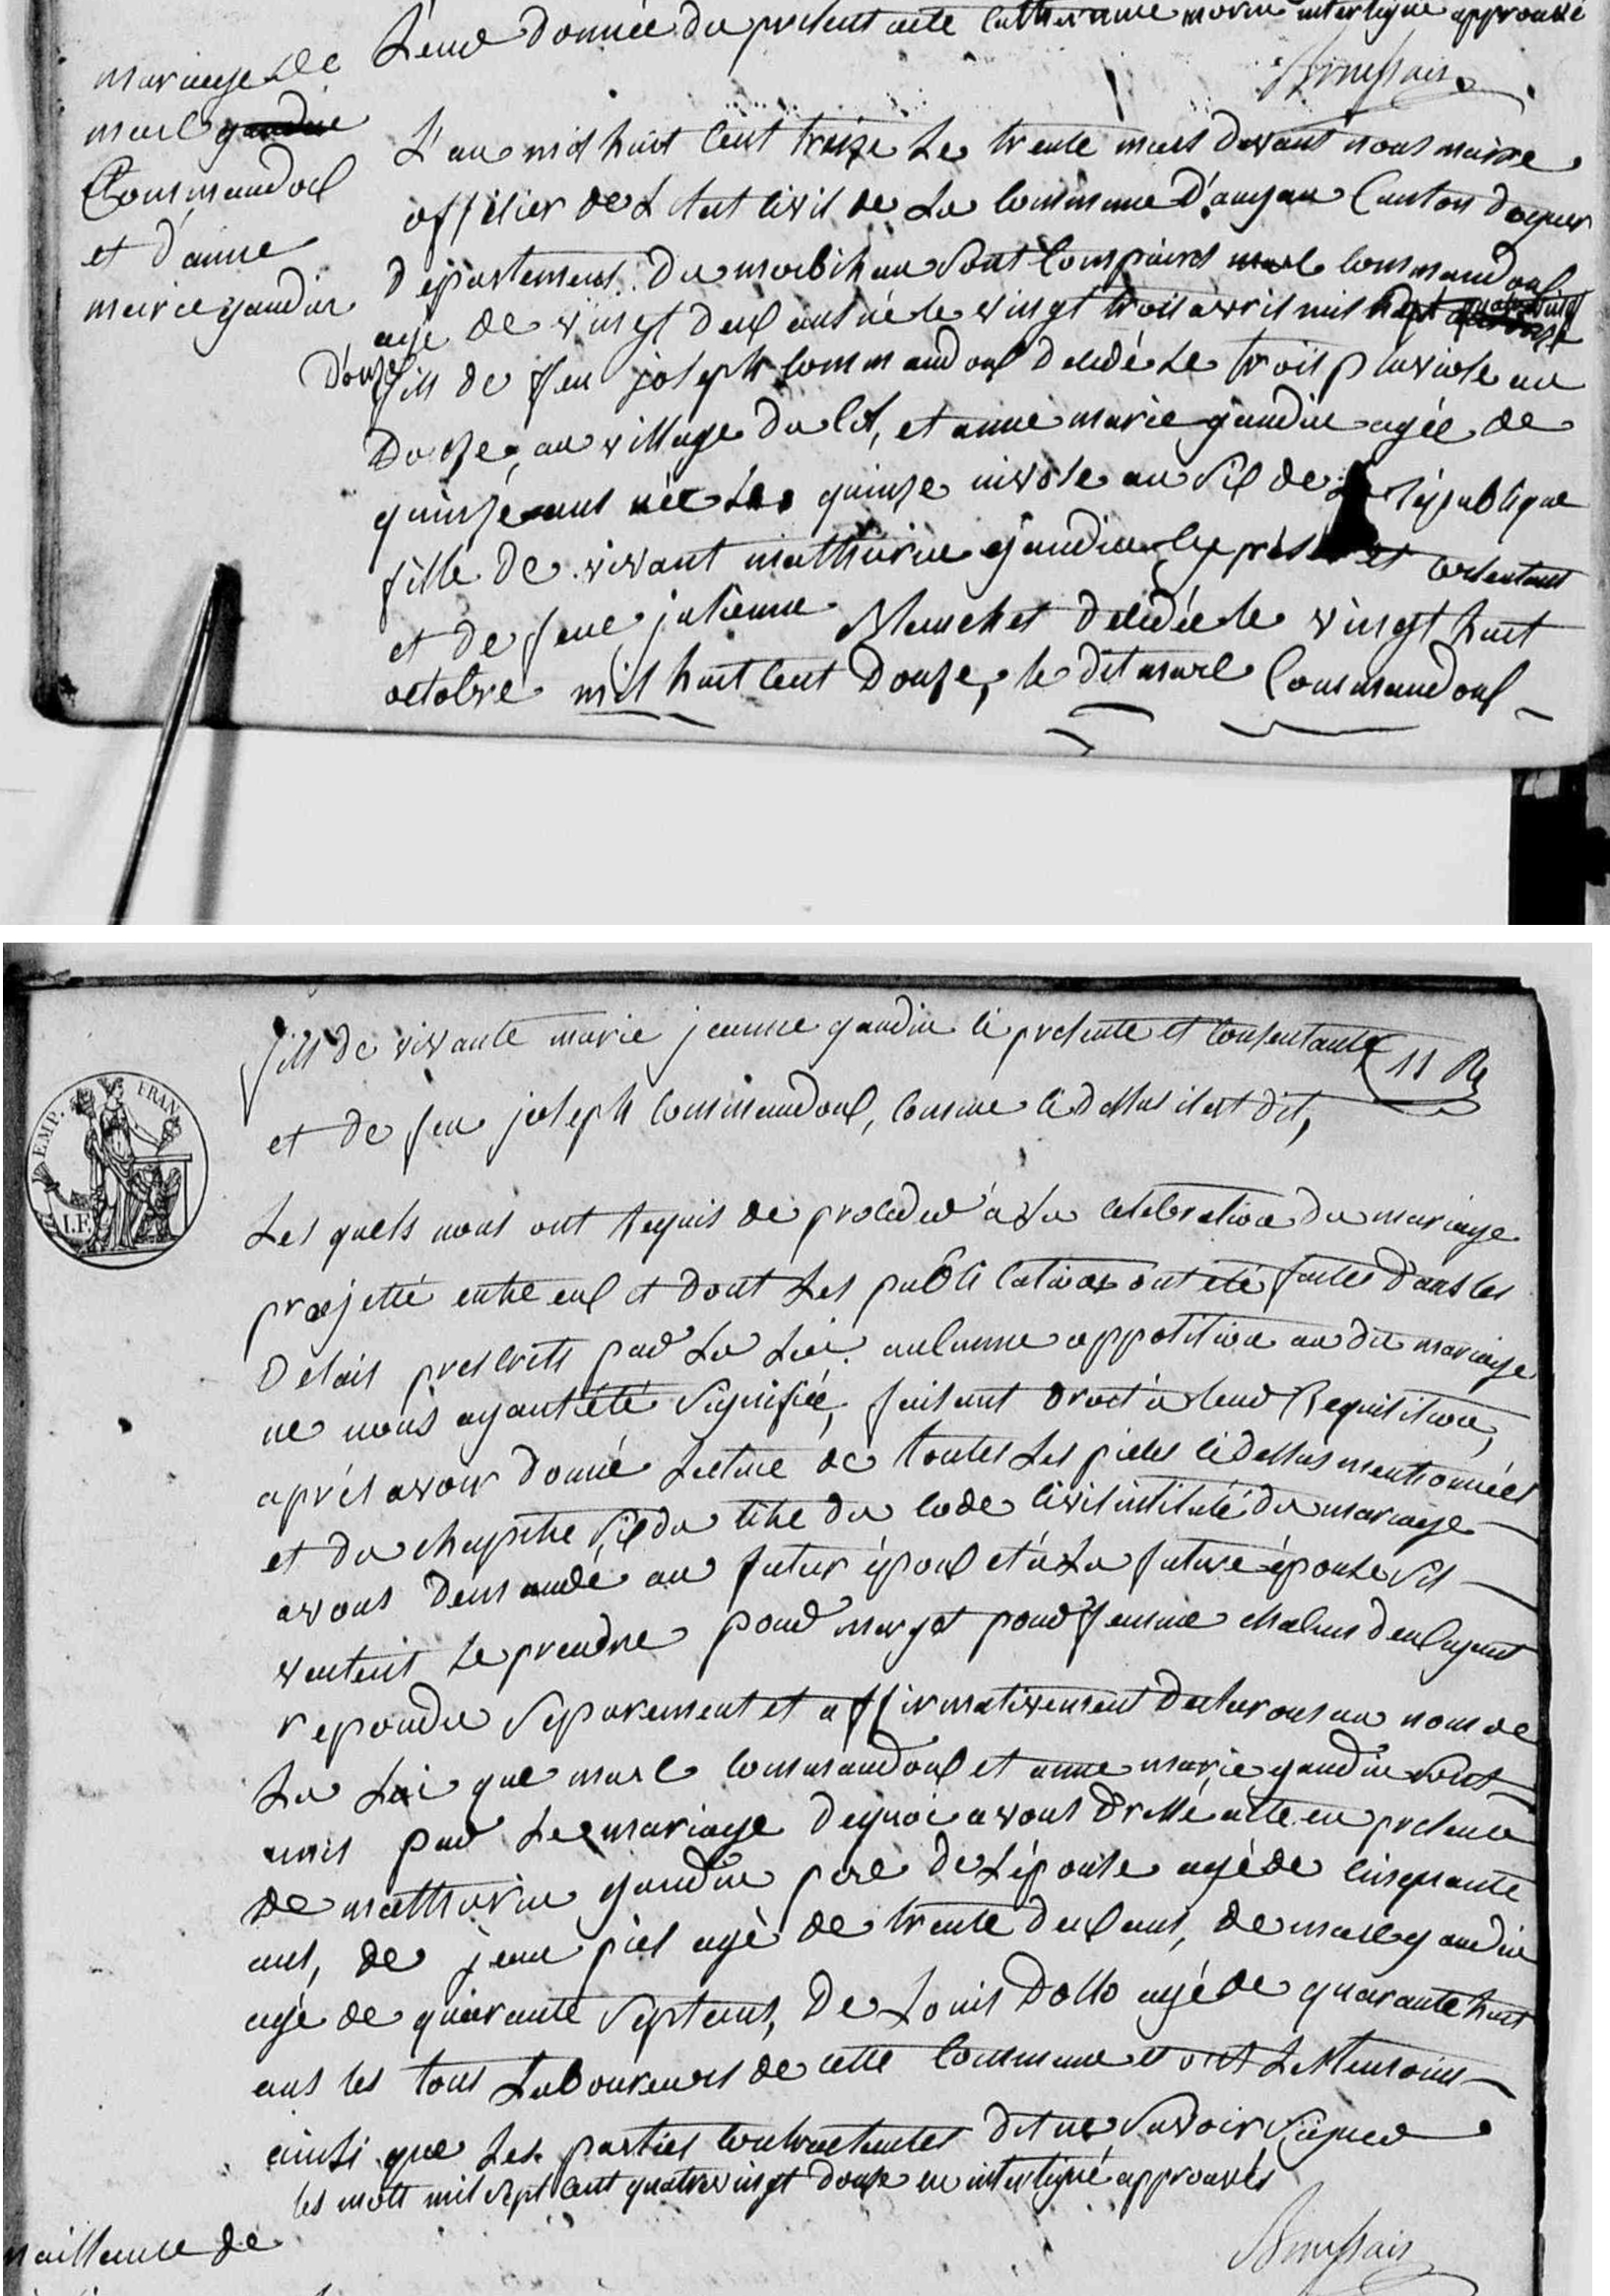 Leur donnée du présent acte Catherinne morin interligne approuvé
Broussais
mariage de
marc gaudin
Commandoux
et d'anne
marie gaudin
L'an mil huit cent treize Le trente mars devant nous maire
officier de L'état civil de La commune d'augan Canton de guer
département du morbihan Sont Comparus marc commandoux
age de vingt deux ans né le vingt trois avril mil sept quatre vingt
Douze
fils de feu joseph commandoux décédé Le trois pluviose an
Douze, au village du lit, et anne marie gaudin agée de
quinze ans née Le quinze nivose an six de La république
fille de vivant mathurin gaudin cy présent et consentant
et de feue julienne Mouchet décédée le vingt huit
octobre mil huit cent Douze, le dit marc Commandoux
fils de vivante marie jeanne gaudin ci présente et consentante
11 R
et de feu joseph commandoux, comme ci dessus il est dit,
EMP. FRAN.
I.F.
Les quels nous ont requis de proceder à La célébration du mariage
projetté entre eux et dont Les publications ont été faites dans les
Delais prescrits par La Loi. aucunne oppotition au dit mariage
ne nous ayant été Signifiée, faisant droit à leur Requisition,
aprés avoir donné Lecture de toutes Les pieces ci dessus mentionnées
et du chapitre Six du titre du code civil intitulé du mariage
avons demandé au futur époux et à La future épouse S'ils
veulent Se prendre pour mary et pour femme chacun d'eux ayant
repondu Séparement et affirmativement Declarons au nom de
La Loi que marc commandoux et anne marie gaudin Sont
unis par Le mariage de quoi avons dressé acte en présence
De mathurin gaudin pere de L'épouse agé de cinquante
ans, de jean piel agé de trente deux ans, de marc gaudin
agé de quarante Sept ans, De Louis Dollo agé de quarante huit
ans les tous Laboureurs de cette Commune et ont Les temoins
ainsi que Les parties contractantes dit ne Savoir Signer
les mots mil sept cent quatre vingt douze en interligne approuvés
Broussais
naissance de